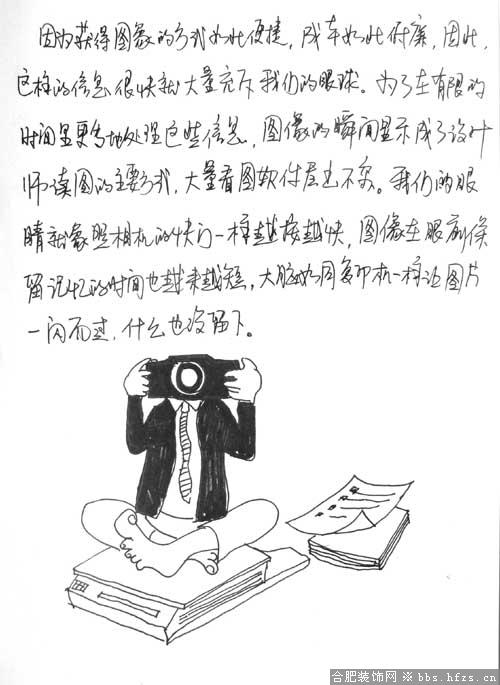 因为获得图象的方式如此便捷，成本如此低廉，因此，
这样的信息很快就大量充斥我们的眼球。为了在有限的
时间里更多地处理这些信息，图像的瞬间显示成了设计
师读图的主要方式，大量看图软件层出不穷。我们的眼
睛就象照相机的快门一样越按越快，图像在眼前停
留记忆的时间也越来越短，大脑如同复印机一样让图片
一闪而过，什么也没留下。
合肥装饰网 ※ bbs.hfzs.cn